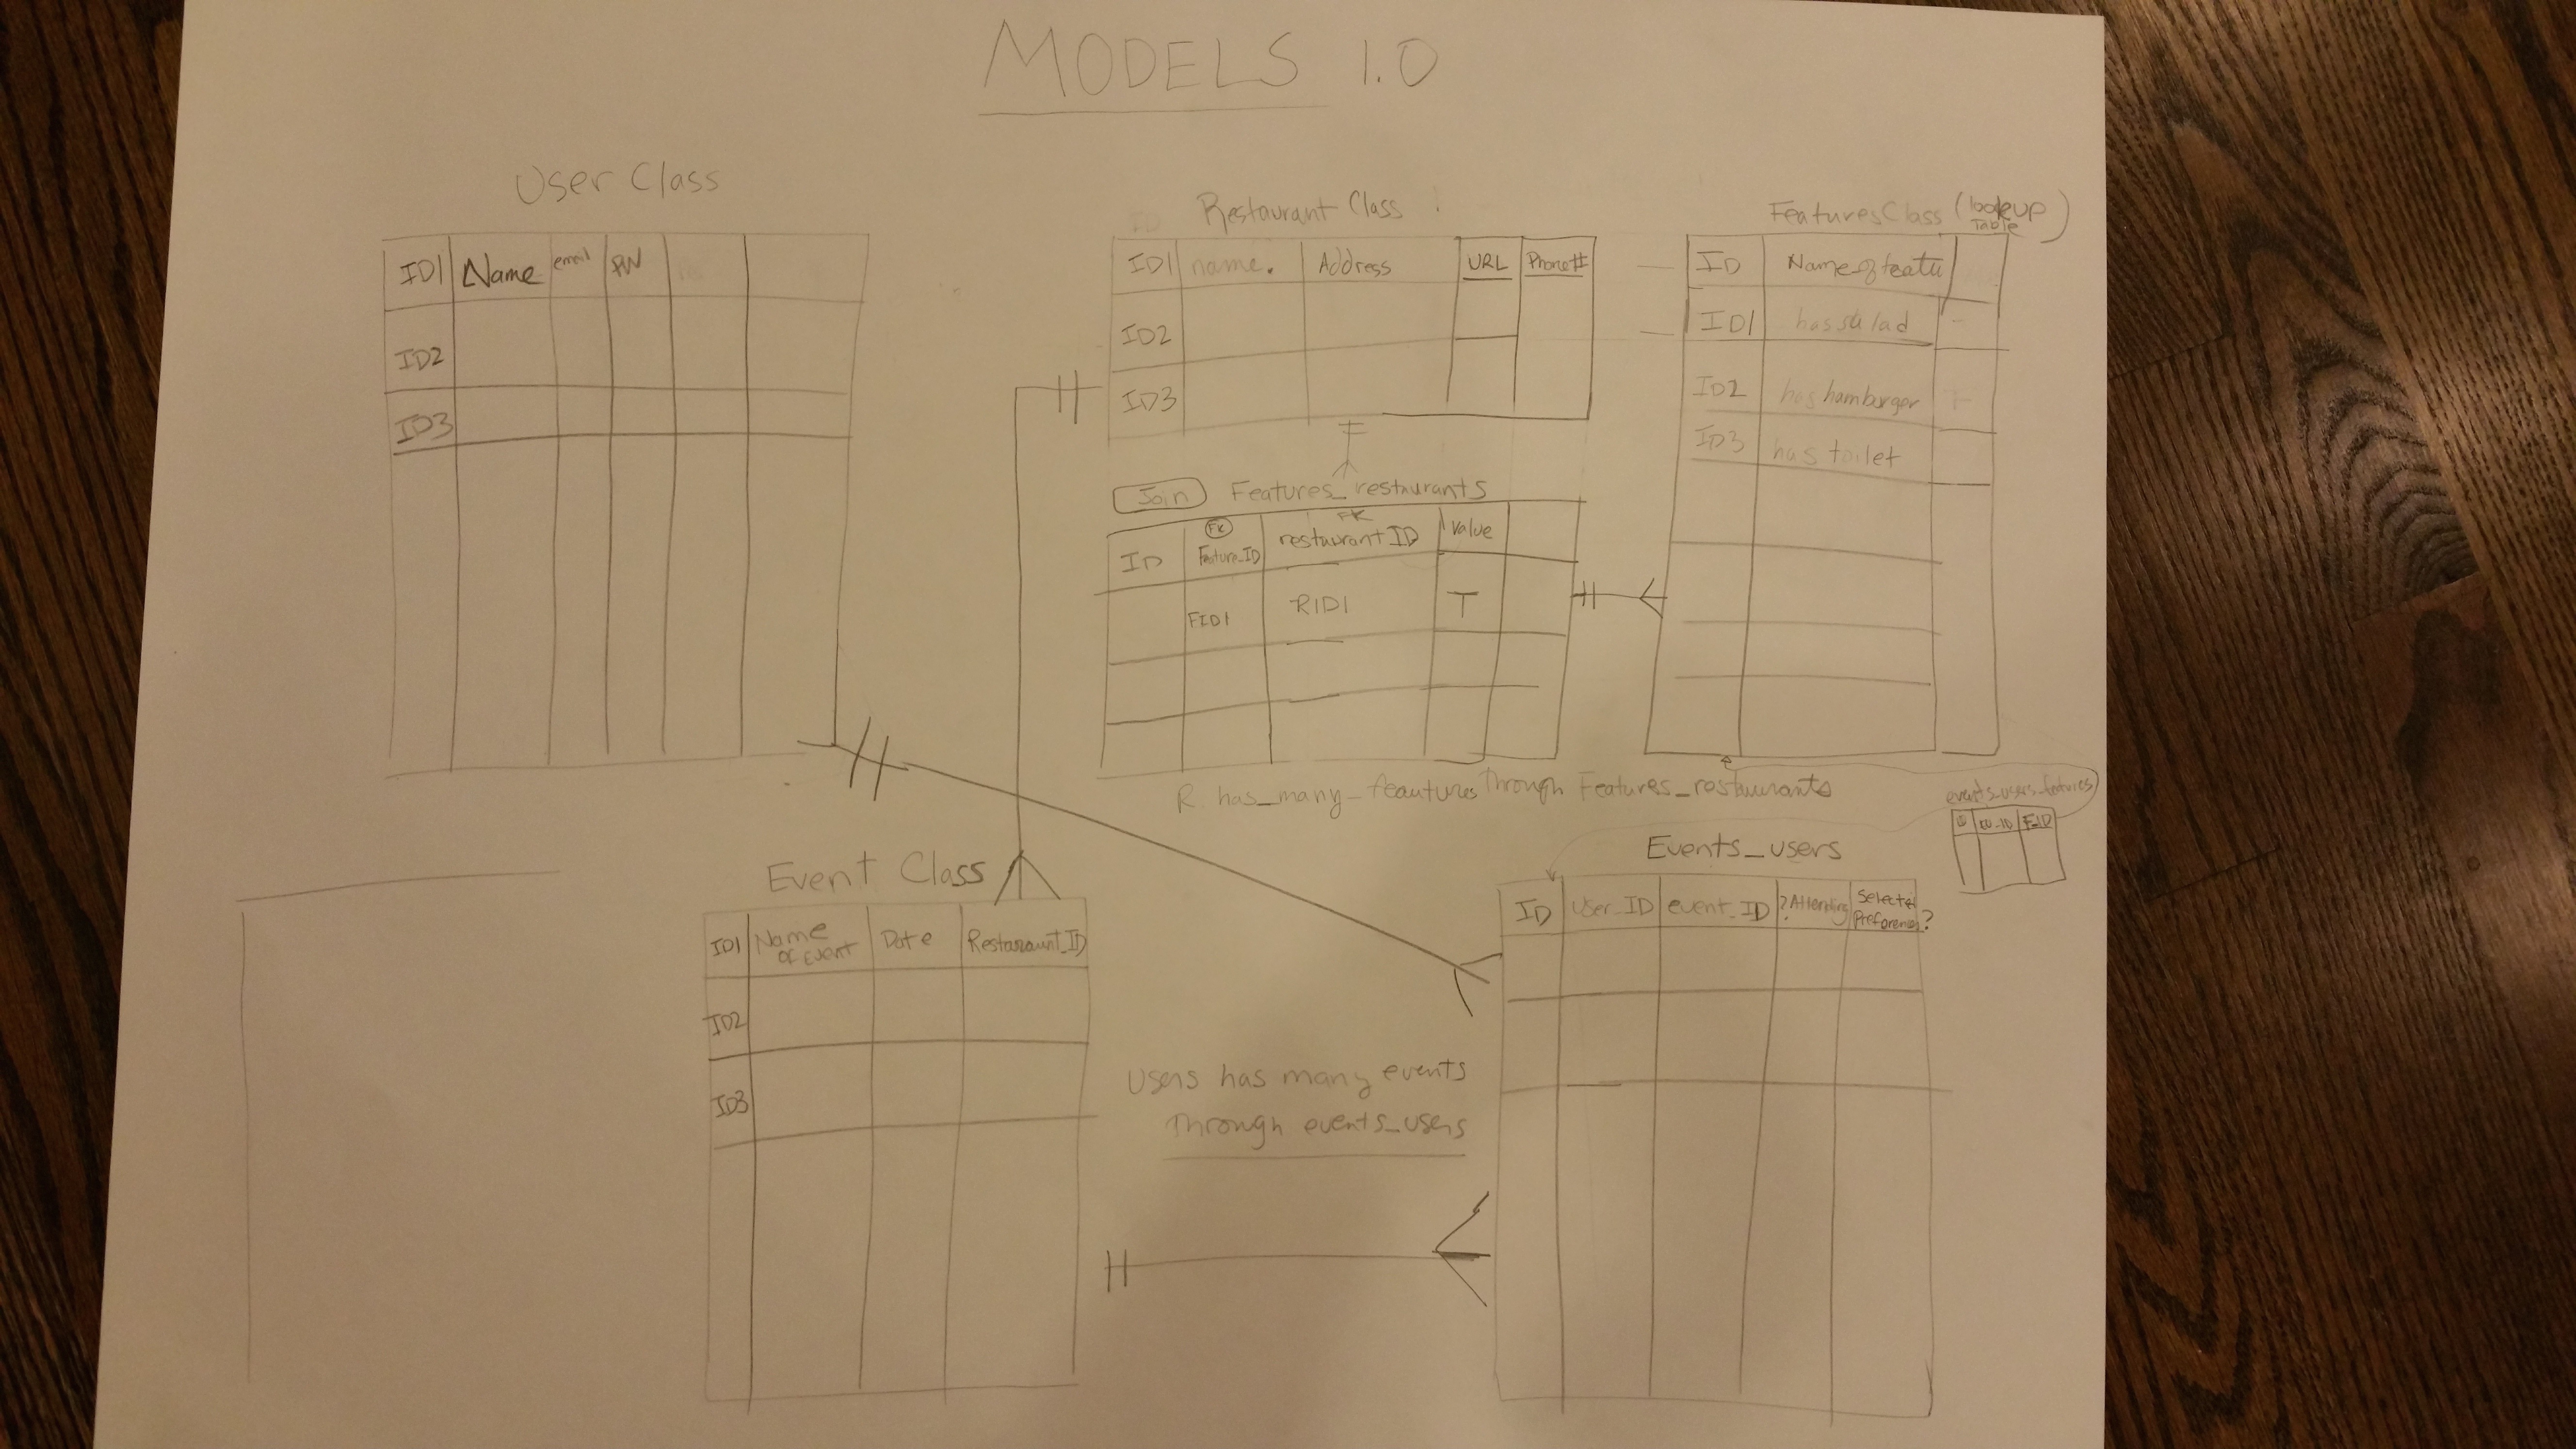 MODELS 1.0
User Class
ID1 Name email PW
ID2
ID3
Restaurant Class
ID1 name. Address URL Phone#
ID2
ID3
Features Class (lookup Table)
ID Name of featu
ID1 has salad
ID2 has hamburger
ID3 has toilet
Join Features_restaurants
FK FK
ID Feature_ID restaurant ID Value
FID1 RID1 T
R. has_many_feautures through Features_restaurants
events_users_features
ID EU_ID F_ID
Event Class
ID1 Name of Event Date Restaraunt_ID
ID2
ID3
Events_users
ID User_ID event_ID ?Attending Selected Preferences?
Users has many events
through events_users